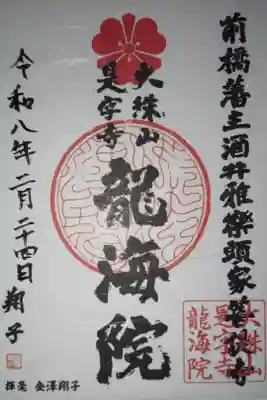 前橋藩主酒井雅楽頭家菩提寺
大珠山
是字寺
龍海院
令和八年二月二十四日 翔子
大珠山
是字寺
龍海院
揮毫 金澤翔子